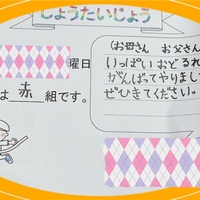 しょうたいじょう
曜日
は赤組です。
(お母さん お父さん
いっぱいおどるれ
がんばってやりま
ぜひきてください。